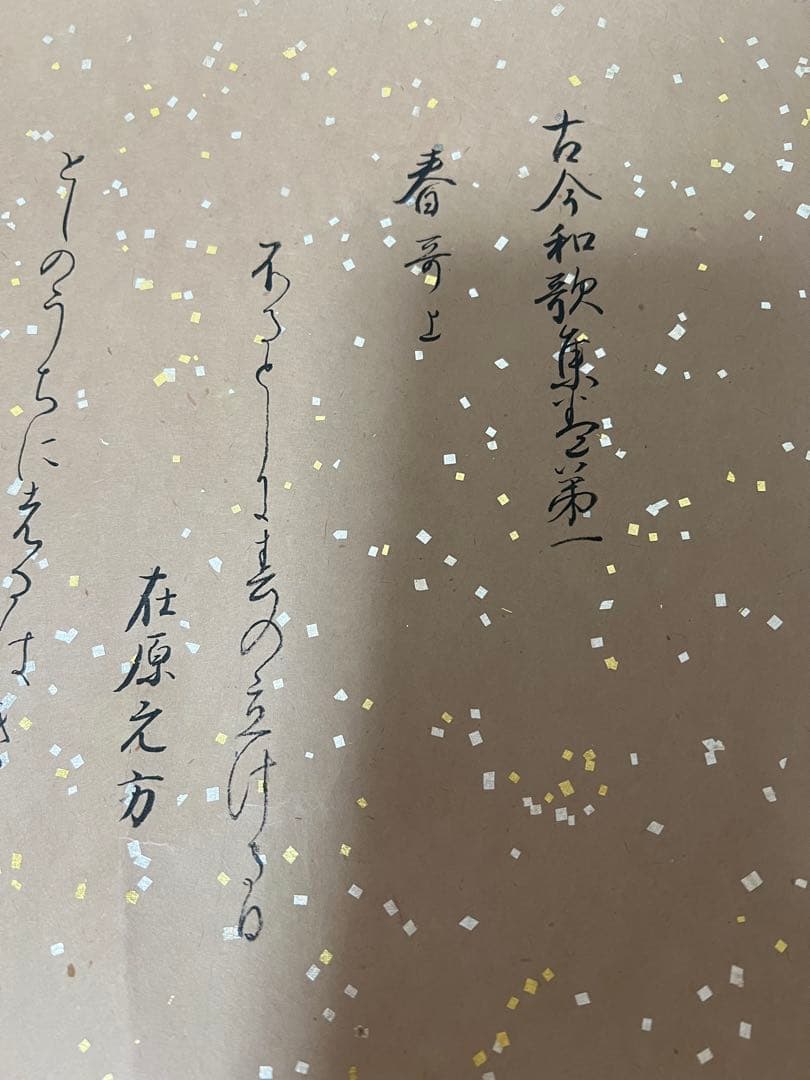 古今和歌集巻第一
春哥上
ふるとしに春の立ける日
在原元方
としのうちに者るはき